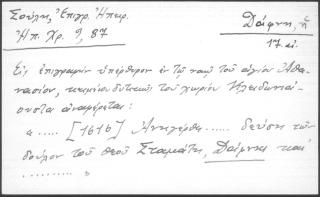 Σούλη, Ἐπιγρ. Ἠπειρ.
Ἠπ. Χρ. 9, 87
Δάφνη, ἡ
17. αἰ.
Εἰς ἐπιγραφὴν ὑπέρθυρον ἐν τῷ ναῷ τοῦ ἁγίου Ἀθα-
νασίου, κειμένου δυτικῶς τοῦ χωρίου
ἀναφέρεται:
« ..... [1616] Ἀνιγέρθη ...... δεύση τῶν
δούλον τοῦ θεοῦ Σταμάτη, Δάφνης καὶ
.......... »